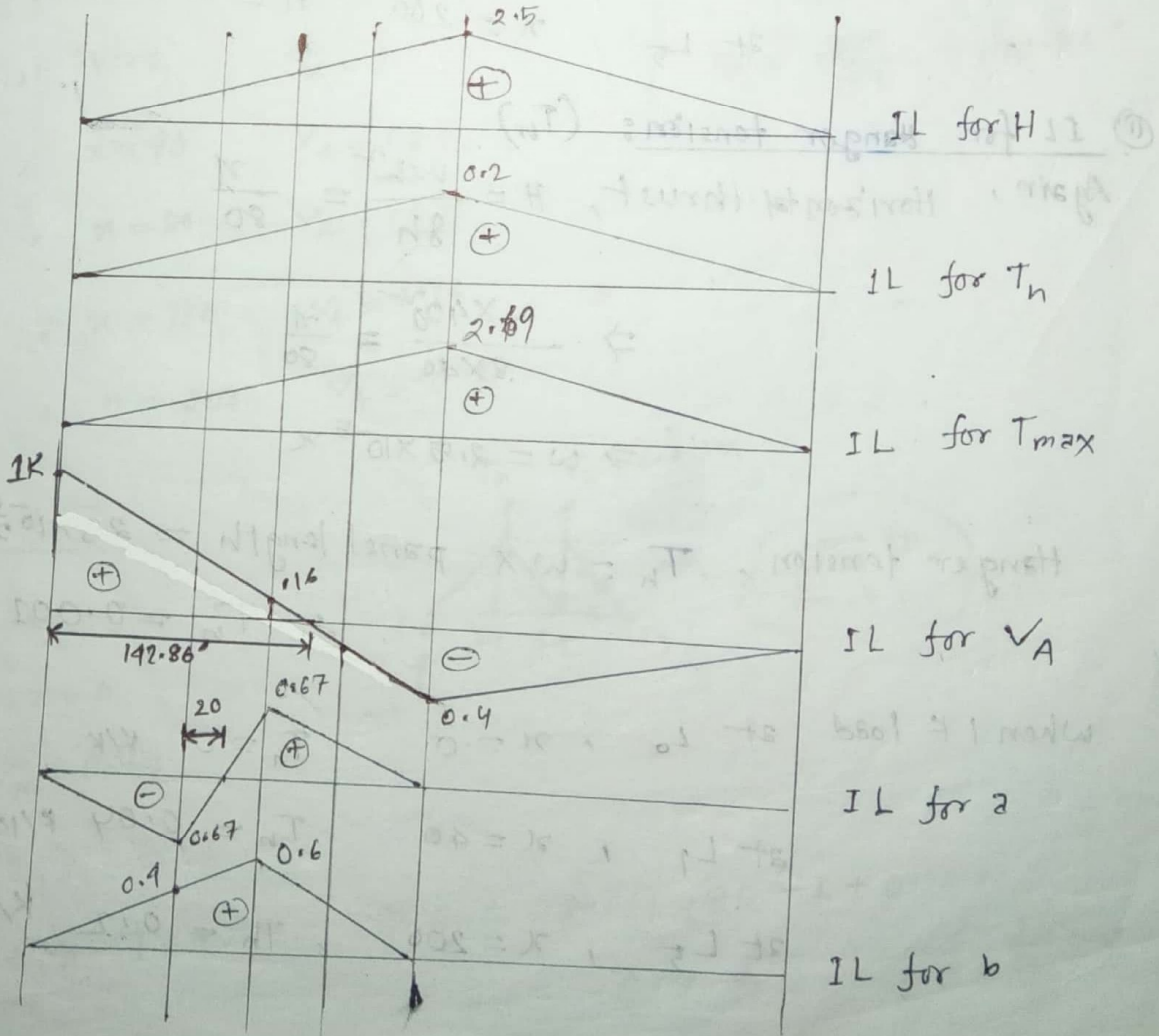 2.5
(+)
IL for H
0.2
(+)
IL for Th
2.69
(+)
IL for Tmax
1K
(+)
.16
142.86'
(-)
0.4
IL for VA
20
0.67
(+)
(-)
0.67
IL for a
0.4
0.6
(+)
IL for b